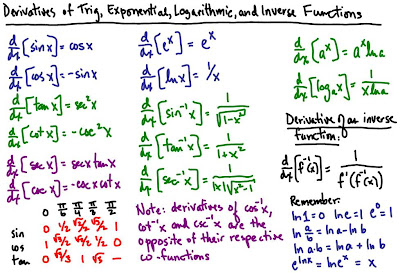 Derivatives of Trig, Exponential, Logarithmic, and Inverse Functions
d/dx [sin x] = cos x
d/dx [cos x] = -sin x
d/dx [tan x] = sec²x
d/dx [cot x] = -csc²x
d/dx [sec x] = sec x tan x
d/dx [csc x] = -csc x cot x
0 π/6 π/4 π/3 π/2
sin 0 1/2 √2/2 √3/2 1
cos 1 √3/2 √2/2 1/2 0
tan 0 √3/3 1 √3 —
d/dx [eˣ] = eˣ
d/dx [ln x] = 1/x
d/dx [sin⁻¹x] = 1/√(1-x²)
d/dx [tan⁻¹x] = 1/(1+x²)
d/dx [sec⁻¹x] = 1/(|x|√(x²-1))
Note: derivatives of cos⁻¹x,
cot⁻¹x and csc⁻¹x are the
opposite of their respective
co-functions
d/dx [aˣ] = aˣ ln a
d/dx [logₐx] = 1/(x ln a)
Derivative of an inverse
function:
d/dx [f⁻¹(x)] = 1/(f'(f⁻¹(x)))
Remember:
ln 1 = 0 ln e = 1 e⁰ = 1
ln a/b = ln a - ln b
ln a·b = ln a + ln b
e^(ln x) = ln eˣ = x